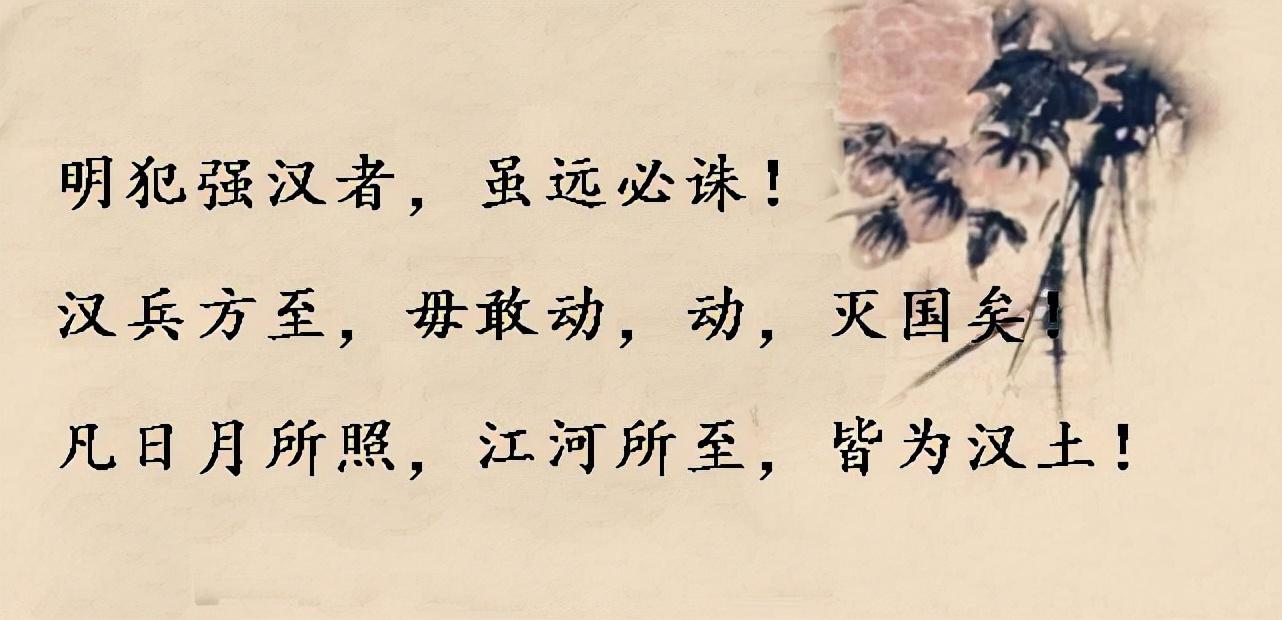 明犯强汉者，虽远必诛！
汉兵方至，毋敢动，动，灭国矣！
凡日月所照，江河所至，皆为汉土！